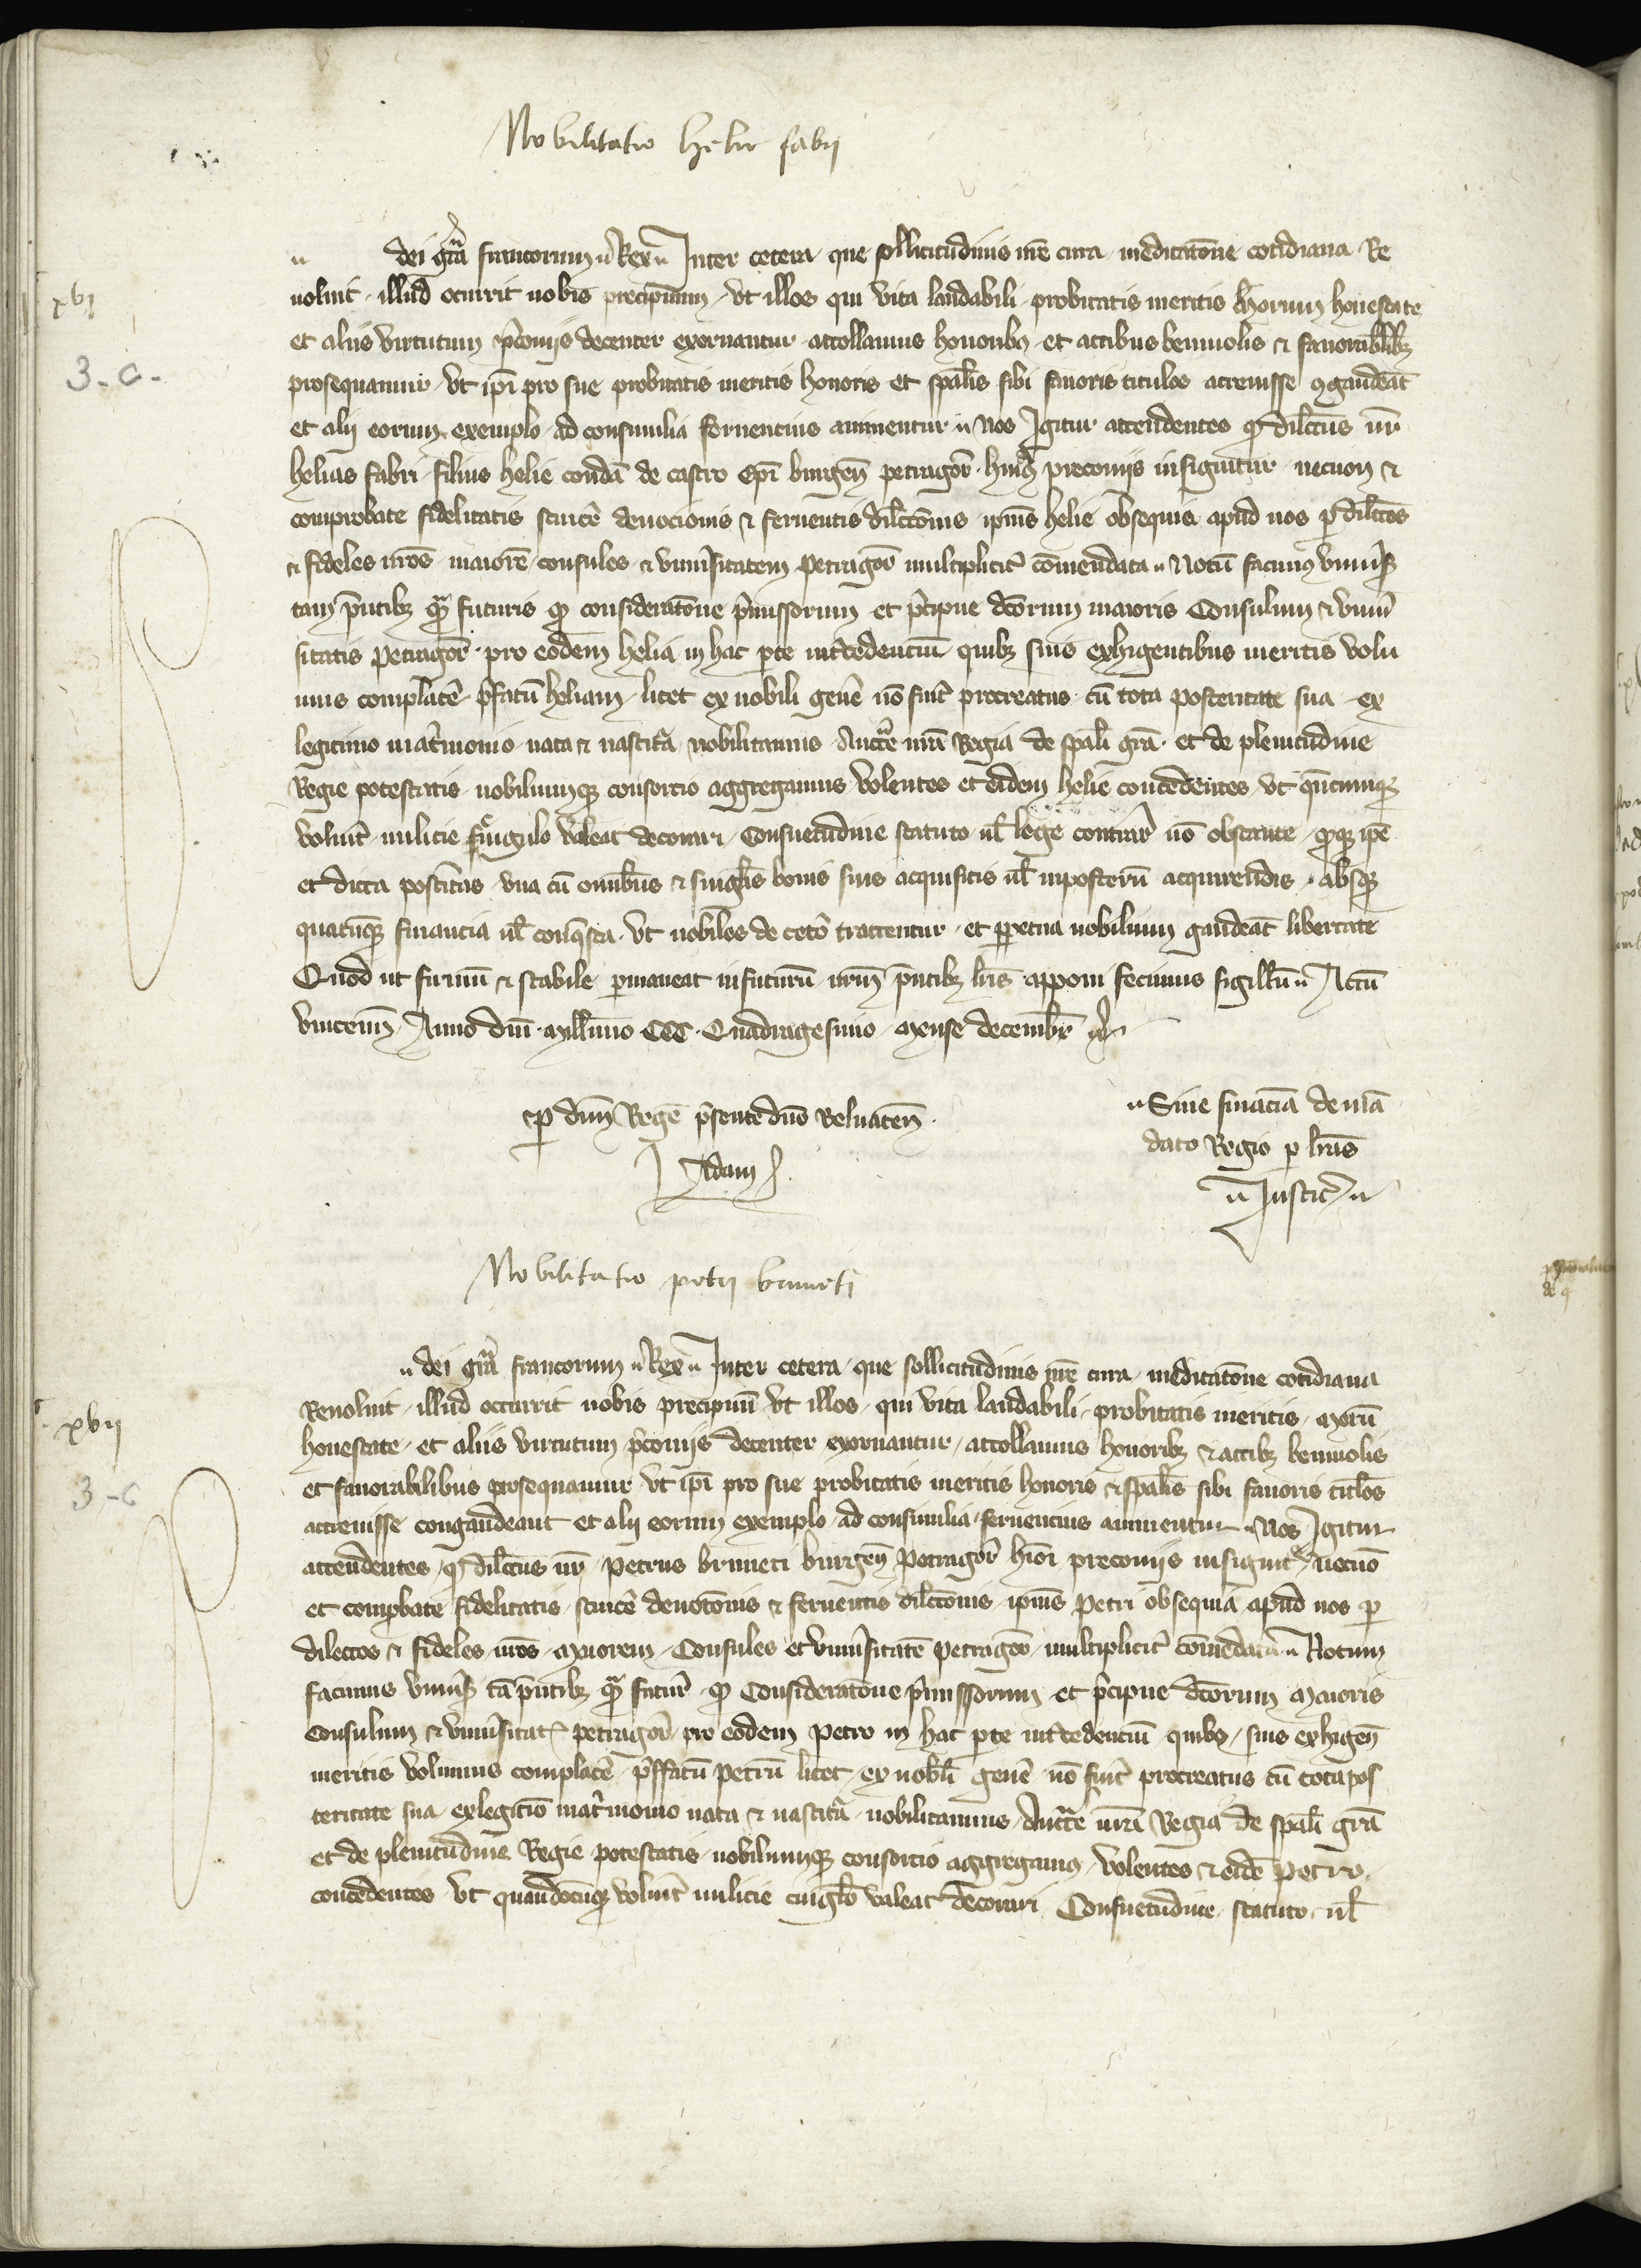 Nobilitatio helie fabri
dei gr̃a francorum Rex Inter cetera que sollicitudinis nr̃e cura meditatõne cotidiana Re
xvj
uoluit illud ocurrit nobis precipuum vt illos qui vita laudabili probitatis meritis morum honestate
et aliis virtutum p̃coniis decenter exornantur attollamus honoribus et actibus beniuolis & fauorabilibꝫ
3. c.
prosequamur vt ip̃i pro sue probitatis meritis honoris et sp̃alis sibi fauoris titulos acreuisse ꝯgaudeãt
et alij eorum exemplo ad consimilia feruencius animentur Nos Igitur attendentes ꝙ dilc̃tus nr̃
helias fabri filius helie condã de castro Ep̃i burgeñ petragor̃ huiꝰ preconiis insignitur necnon &
comprobate fidelitatis sincẽ deuocionis & feruentis dilc̃tõnis ipiũs helie obsequia apud nos ꝑ dilc̃tos
& fideles nr̃os maiorẽ consules & vniu̾sitatem petragor̃ multiplicit̾ cõmendata Notũ facimꝰ vniu̾s̃
tam p̃ntibꝫ qᷓ futuris ꝙ consideratõne p̃missorum et p̃cipue dc̃orum maioris Consulum & vniu̾
sitatis petragor̃ pro eodem helia in hac ꝑte int̾cedenciũ quibꝫ suis exhigentibus meritis volu
mus complacẽ p̃fatũ heliam licet ex nobili gene̾ nõ fuit̾ procreatus cũ tota posteritate sua ex
legitimo mat̾monio nata & nascit̾a nobilitamus Auctẽ nr̃a Regia de sp̃ali gr̃a et de plenitudine
Regie potestatis nobiliumqꝫ consorcio aggregamus volentes et eidem helie concedentes vt qñcumqꝫ
voluit̾ milicie cingulo valeat decorari Consuetudine statuto ul̃ lege contrar̃ nõ obstante ꝙqꝫ ip̃e
et dicta post̾itas vna cũ omnibus & singlis bonis suis acquisitis ul̃ inposterũ acquirendis absqꝫ
quacũqꝫ financia ul̃ conq̃sta vt nobiles de cet̾o tractentur et ꝑpetua nobilium gaudeãt libertate
Quod ut firmũ & stabile ꝑmaneat infuturũ nr̃m p̃ntibꝫ lr̃is apponi fecimus sigillũ Actũ
vinceñ Anno dñi millimo CCC Quadragesimo mense decembr̃
ꝑ dñm Regẽ p̃sente dño Beluaceñ
Adam
Sine financia de mã
dato Regio ꝑ lr̃as
Justic̾
Nobilitatio petri bruneti
dei gr̃a francorum Rex Inter cetera que sollicitudinis nr̃e cura meditatõne cotidiana
Reuoluit illud occurrit nobis precipuũ vt illos qui vita laudabili probitatis meritis morũ
xvij
honestate et aliis virtutum p̃coniis decenter exornantur attollamus honoribꝫ & actibꝫ beniuolis
3. c
et fauorabilibus prosequamur vt ip̃i pro sue probitatis meritis honoris & sp̃alis sibi fauoris titlos
acreuisse congaudeant et alij eorum exemplo ad consimilia feruencius animentur Nos Igitur
attendentes ꝙ dilc̃tus nr̃ petrus bruneti burgeñ petragor̃ preconiis insignit̾ necnõ
et comꝓbate fidelitatis sincẽ deuotõnis & feruentis dilc̃tõnis ipiũs petri obsequia apud nos ꝑ
dilectos & fideles nr̃os maiorem Consules et vniu̾sitatẽ petragor̃ multiplicit̾ cõmẽdata Notum
facimus vniu̾s̃ tã p̃ntibꝫ qᷓ futur̃ ꝙ Consideratõne p̃missorum et p̃cipue dc̃orum maioris
Consulum & vniu̾sitat̾ petragor̃ pro eodem petro in hac ꝑte int̾cedenciũ quibꝰ suis exhigeñ
meritis volumus complacẽ p̃ffatũ petrũ licet ex nobili gene̾ nõ fuit̾ procreatus cũ tota pos
teritate sua ex legitĩo mat̾monio nata & nascit̾a nobilitamus Auctẽ nr̃a Regia de sp̃ali gr̃a
et de plenitudine Regie potestatis nobiliumqꝫ consorcio aggregamꝰ volentes & eidẽ petro
concedentes vt quandocũqꝫ voluit̾ milicie cinglo valeat decorari Consuetudine statuto ul̃